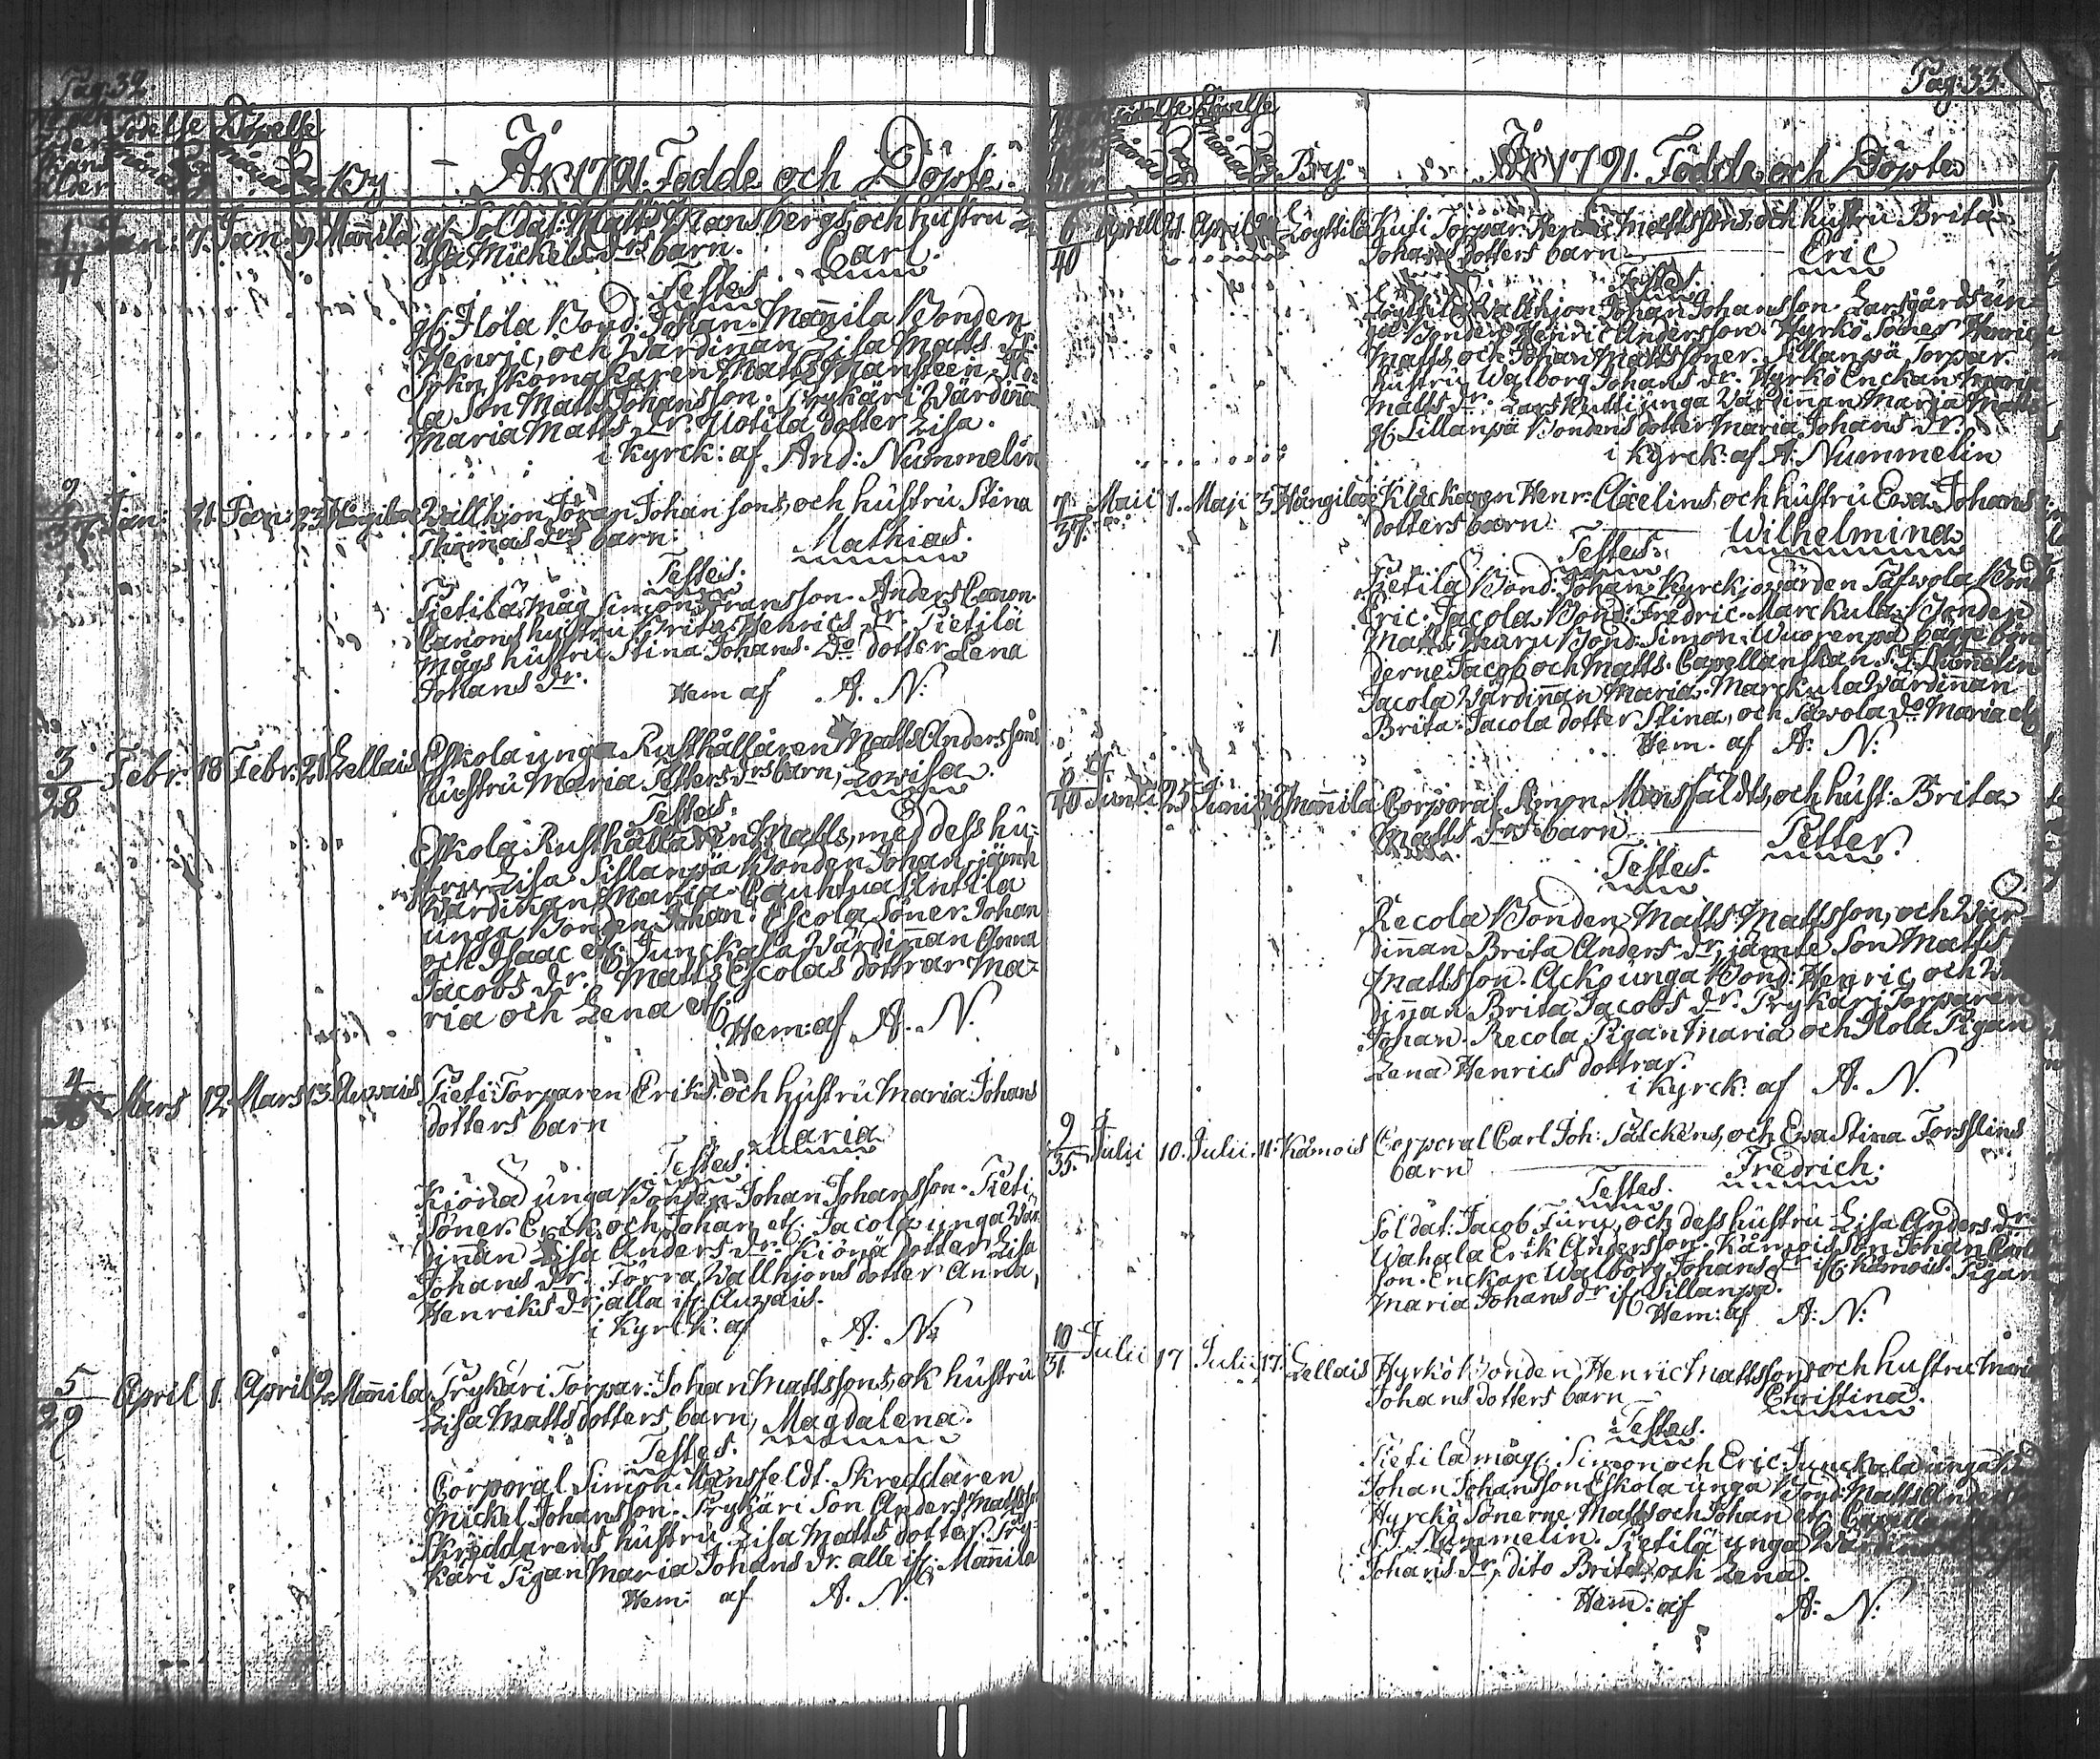 Pag: 32.
Födelse Döpelse
By
År 1791. Födde och Döpte.
1/41 Jan: 7. Jan: 9. Mannila gl. Soldat: Matts Mansbergs, och hustru
Michels drs barn. Carl.
Testes.
gl. Ilola Bond: Johan. Mannila Bonden
Henric, och Wärdinan Lisa Matts dr.
Sokn Skomakaren Matts Manstéen,
la Son Matts Johansson. Prykäri Wärdinna
Maria Matts dr. Uotila dotter Lisa.
i Kyrck: af And: Nummelin
2/37 Jan: 21. Jan: 23. Hångilax Wallhjon Jöran Johansons, och hustru Stina
Thomas drs barn. Mathias.
Testes.
Pietilä måg Simon Fransson. Anders Canon.
Canons hustru Brita Henrics dr. Pietilä
mågs hustru Stina Johans. Do dotter Lena
Johans dr. Hem af A. N:
3/28 Febr: 18 Febr: 21 Lellais Eskola unga Rusthållaren Matts Anderssons
hustru Maria Petters drs barn, Lowisa.
Testes.
Eskola Rusthållaren Matts, med dess hu-
stru Lisa Sillanpä Bonden Johan jämte
Wärdinan Maria. Cauhtua Antila
unga Bonden Johan. Escola Söner Johan
och Isaac etc. Junckala Wärdinnan Anna
Jacobs dr. Matts Escolas dottrar Ma-
ria och Lena etc.
Hem: af A. N.
4/36 Mars 12 Mars 13. Auvais Pieti Torparen Eriks. och hustru Maria Johans
dotters barn Maria
Testes.
Kiönä unga Bonden Johan Johansson. Pieti
Söner. Erik och Johan etc. Jacola unga Wär
dinnan Lisa Anders dr. Kiönä dotter Lisa
Johans dr. Törra Wallhjons dotter Anna
Henriks dr, alla if. Auvais.
i Kyrck: af A: N:
5/29 April 1. April 2. Mannila Prykäri Torpar: Johan Mattssons, ok hustru
Lisa Matts dotters barn, Magdalena.
Testes.
Corporal Simon Mansfeldt. Skreddaren
Michel Johansson. Prykäri Son Anders Mattsson
Skreddarens hustru Lisa Matts dotter. Pry-
käri Pigan Maria Johans dr. alle if. Mannila
Hem: af A. N.
Pag: 33.
Födelse Döpelse
By:
År 1791. Födde och Döpte
6/40 April 21. April Löyttilä Kuti Torpar: Henric Mattssons, och hustru Brita
Johans dotters barn Eric
Testes.
Löyttilä Wallhjon Johan Johansson. Larsgårds un-
ga Bonden Henric Andersson. Hyrkö Söner Henric
Matts och Johan Mattssöner. Sillanpä Torpar.
hustru Walborg Johans dr. Hyrkö Enckan
Matts dr. Lars Kutti unga Wärdinan Maria Matts
gl. Sillanpä Bondens dotter Maria Johans dr.
i Kyrck: af A: Nummelin
7/37 Maii 1. Maji 3. Hångilax Klåckaren Henr: Axelins, och hustru Eva Johans
dotters barn Wilhelmina
Testes.
Pietilä Bond: Johan. Kyrckjowärden Tåfwola Bond
Eric. Jacola Bond: Fredric. Marckula Bonden
Matts. Bond: Simon. Wuorenpä bägge bön
derne Jacob och Matts. Capellanskan S. J. Numelin
Jacola Wärdinnan Maria. Marckula Wärdinnan
Brita. Jacola dotter Stina, och Tåvola Do Maria etc
Hem. af A: N:
8/40 Junii 25 Junii Mannila Corporal Simon Mansfäldts, och hust: Brita
Matts drs barn Petter.
Testes.
Recola Bonden Matts Mattsson, och Wär
dinnan Brita Anders dr, jämte Son Matts
Mattsson. Acko unga Bond: Henric, och
dinnan Brita Jacobs dr. Prykäri Torparen
Johan. Recola Pigan Maria och Ilola Pigan
Lena Henrics dottrar.
i Kyrck: af A. N.
9/35. Julii 10. Julii. 11. Kåmois Corporal Carl Joh: Pålckéns, och Eva Stina Forsslins
barn Fredrich.
Testes.
Soldat: Jacob Furu, och dess hustru Lisa Anders dr.
Wahala Erik Andersson. Kåmois Son Johan
son. Enckan Walborg Johans dr if. Kåmois. Pigan
Maria Johans dr if. Sillanpä.
Hem: af A: N:
10/31. Julii 17 Julii 17. Lellais Hyrkö Bonden Henric Mattssons och hustru Maria
Johans dotters barn Christina.
Testes.
Pietilä måg. Simon och Eric. Junckala unga
Johan Johansson Eskola unga Bond: Matts
Hyrckö Sönerne Matts och Johan etc.
S. J. Nummelin. Pietilä unga
Johans dr, dito Brita och Lena.
Hem: af A: N: